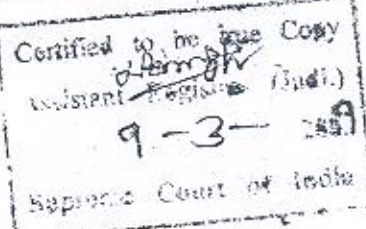 Certified to be true Copy
Assistant Registrar (Judl.)
9 - 3 -
Supreme Court of India